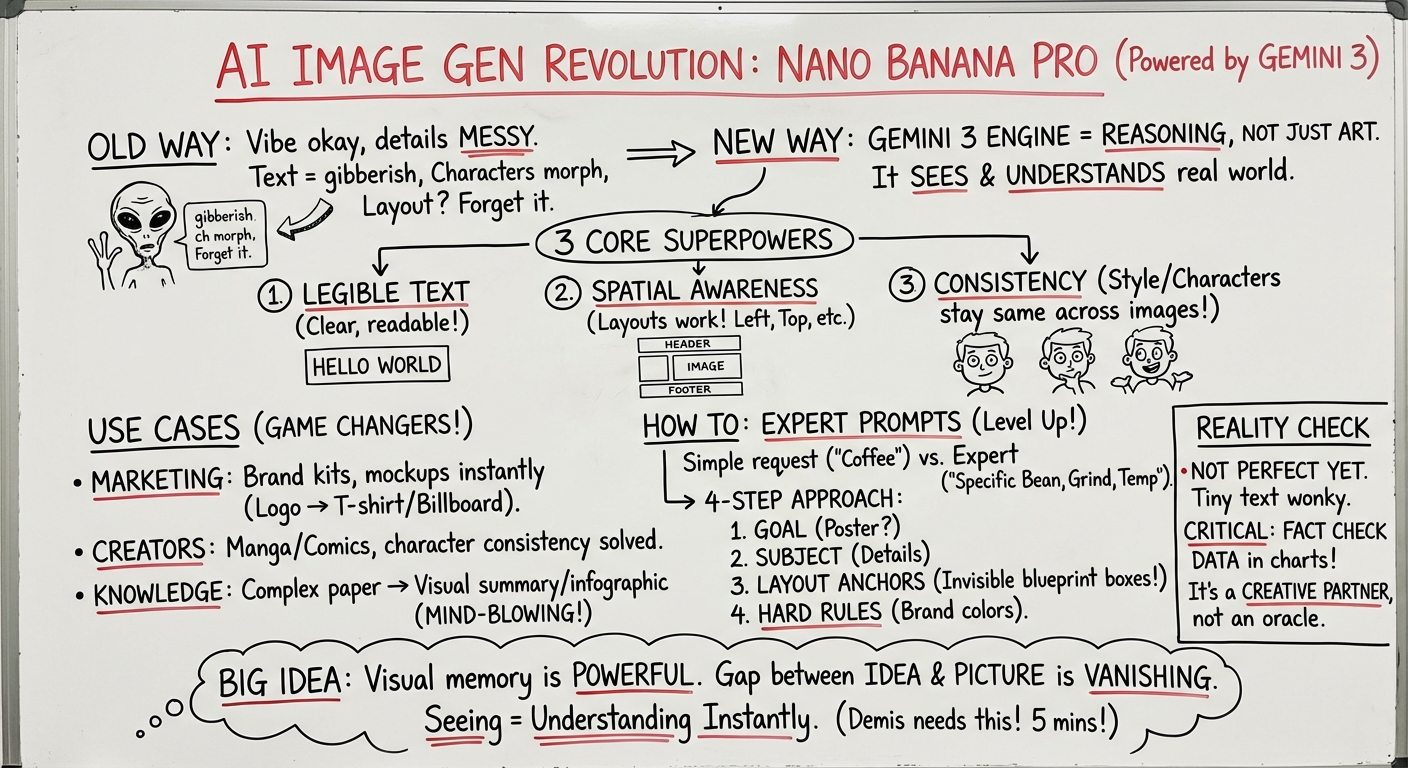 AI IMAGE GEN REVOLUTION: NANO BANANA PRO (Powered by GEMINI 3)
OLD WAY: Vibe okay, details MESSY.
Text = gibberish, Characters morph,
Layout? Forget it.
gibberish.
ch morph,
Forget it.
NEW WAY: GEMINI 3 ENGINE = REASONING, NOT JUST ART.
It SEES & UNDERSTANDS real world.
3 CORE SUPERPOWERS
1. LEGIBLE TEXT
(Clear, readable!)
HELLO WORLD
2. SPATIAL AWARENESS
(Layouts work! Left, Top, etc.)
HEADER
IMAGE
FOOTER
3. CONSISTENCY (Style/Characters
stay same across images!)
USE CASES (GAME CHANGERS!)
• MARKETING: Brand kits, mockups instantly
(Logo → T-shirt/Billboard).
• CREATORS: Manga/Comics, character consistency solved.
• KNOWLEDGE: Complex paper → Visual summary/infographic
(MIND-BLOWING!)
HOW TO: EXPERT PROMPTS (Level Up!)
Simple request ("Coffee") vs. Expert
("Specific Bean, Grind, Temp").
4-STEP APPROACH:
1. GOAL (Poster?)
2. SUBJECT (Details)
3. LAYOUT ANCHORS (Invisible blueprint boxes!)
4. HARD RULES (Brand colors).
REALITY CHECK
• NOT PERFECT YET.
Tiny text wonky.
CRITICAL: FACT CHECK
DATA in charts!
It's a CREATIVE PARTNER,
not an oracle.
BIG IDEA: Visual memory is POWERFUL. Gap between IDEA & PICTURE is VANISHING.
Seeing = Understanding Instantly. (Demis needs this! 5 mins!)